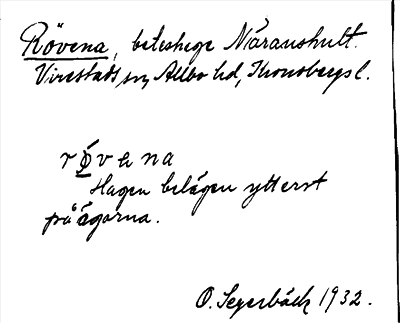 Rövena, beteshage Näraushult.
Virestads sn, Allbo hd, Kronobergs l.
rövena
Hagen belägen ytterst
på ägorna.
O. Segerbäck 1932.